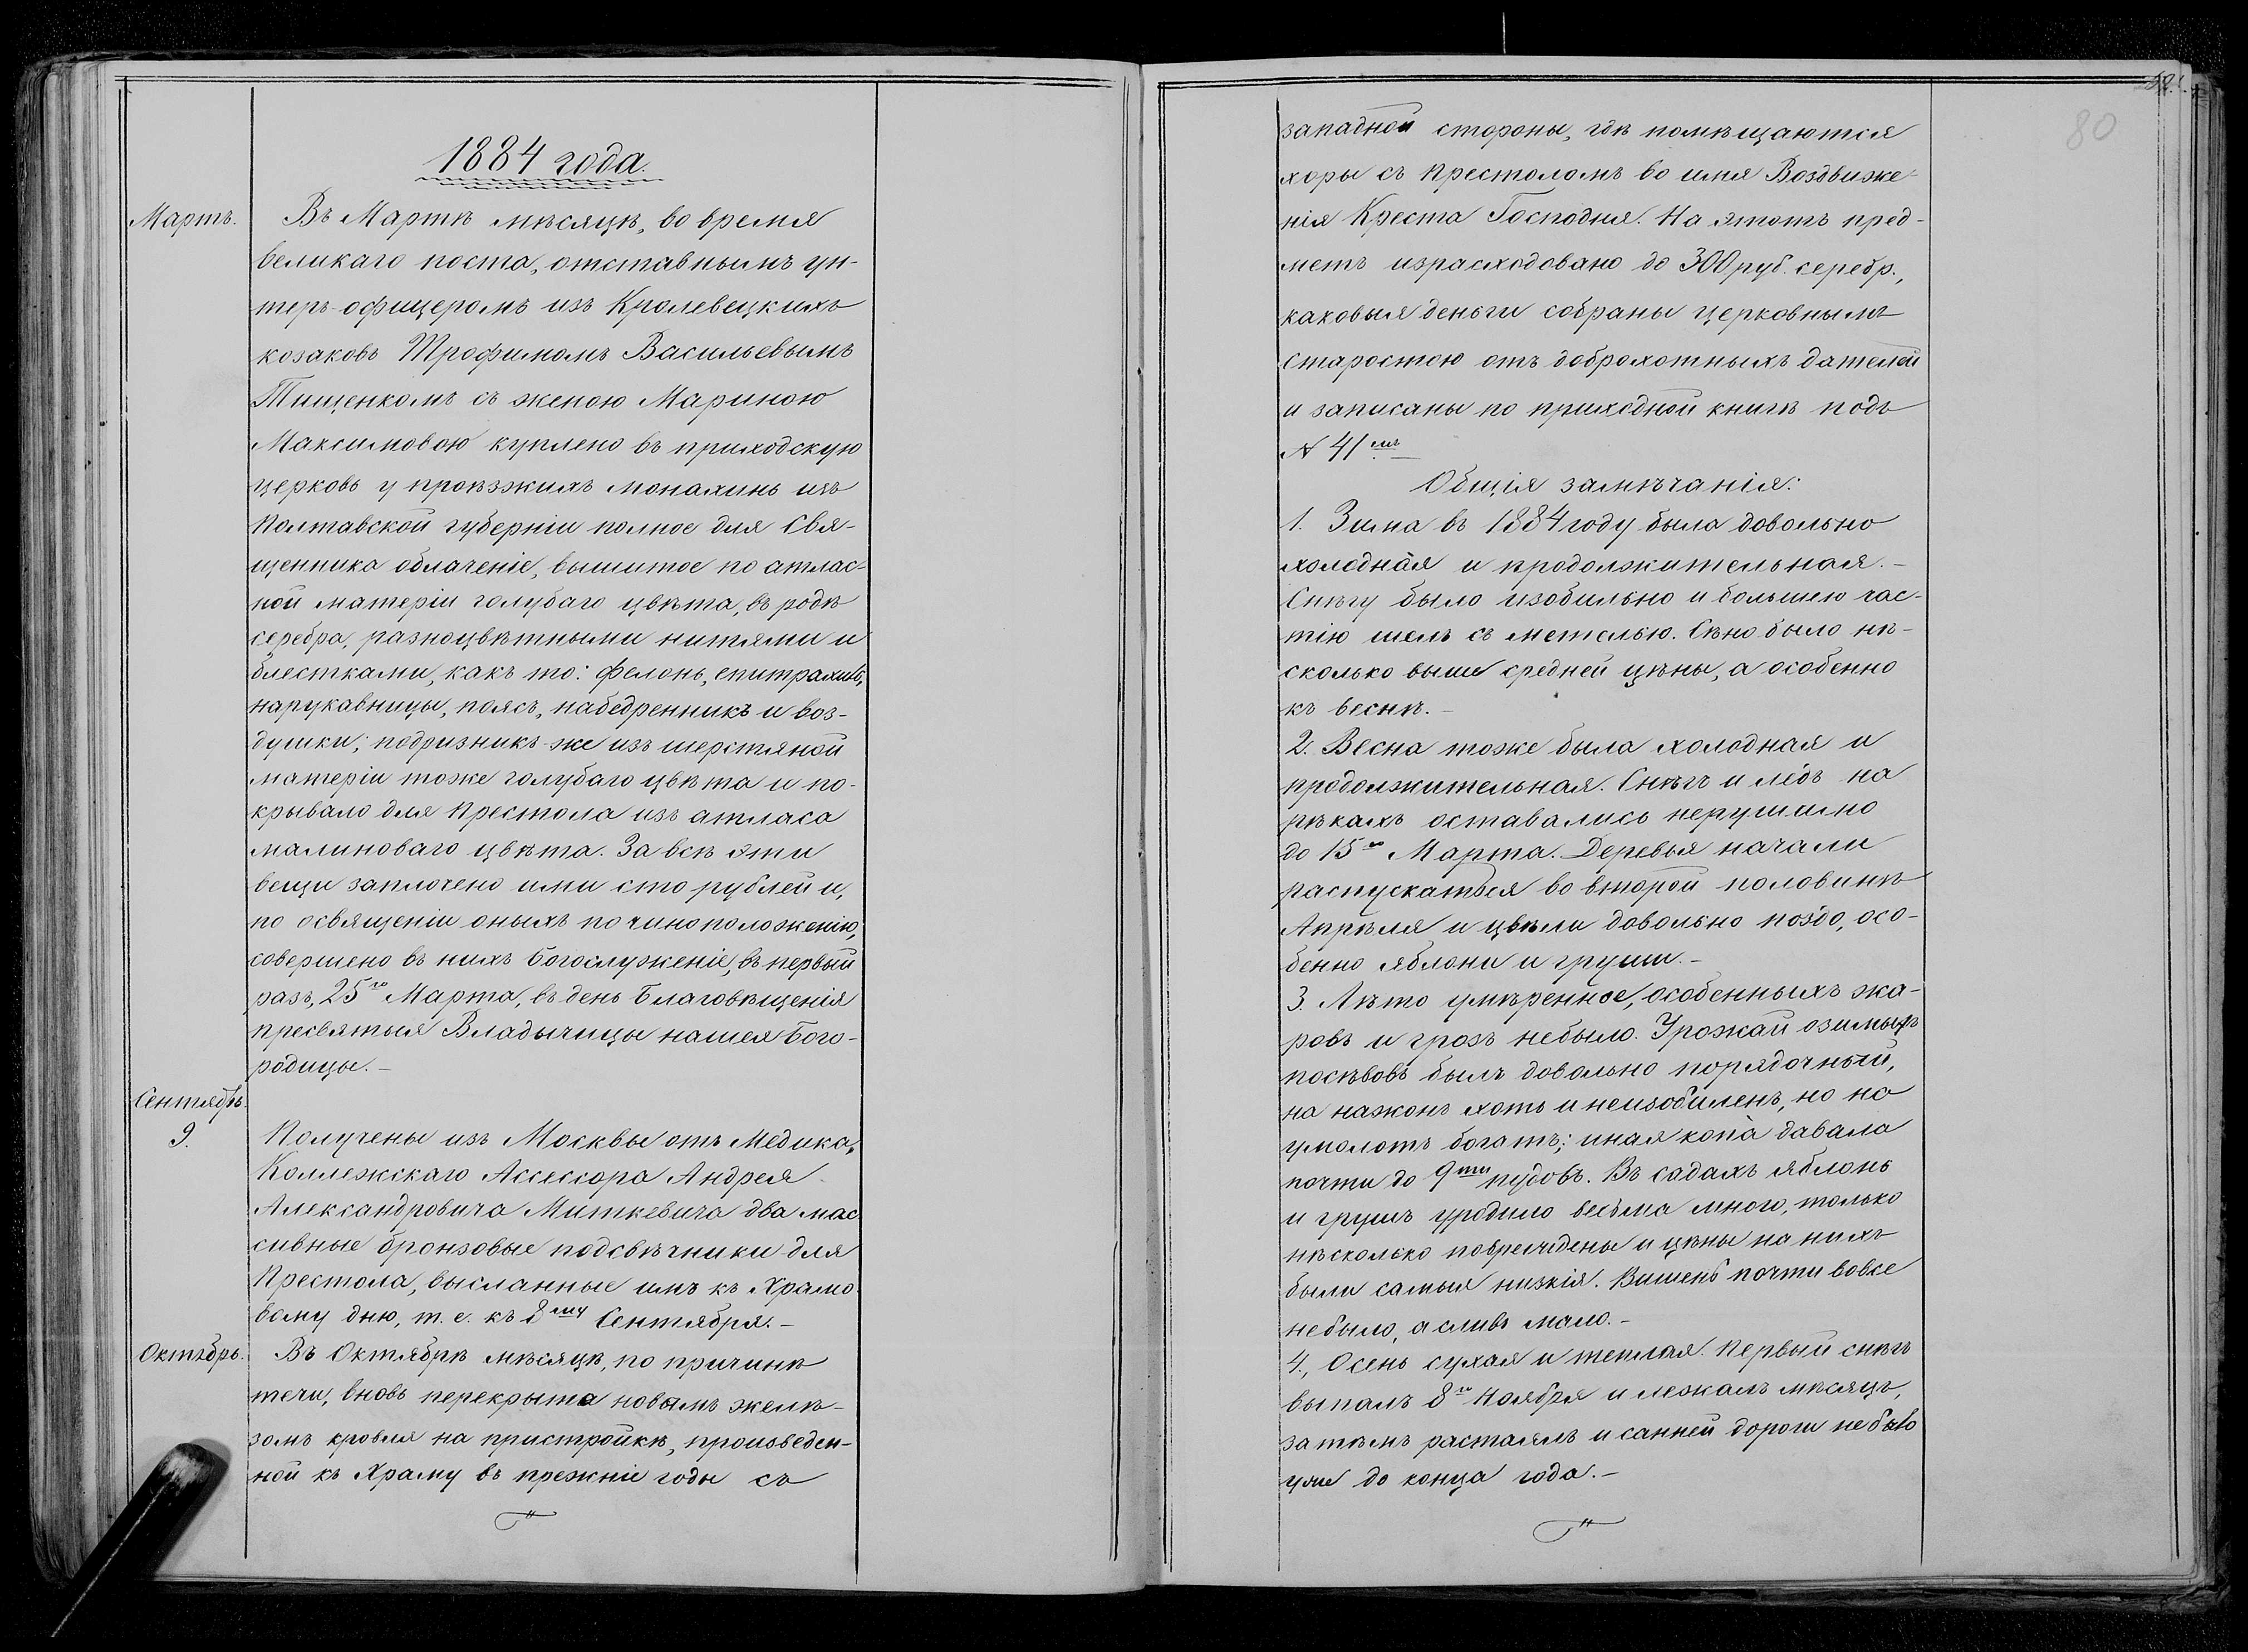 1884 года.
Мартъ.
Въ Мартѣ мѣсяцѣ, во время
великаго поста, отставнымъ ун-
теръ-офицеромъ изъ Кролевецкихъ
козаковъ Трофимомъ Васильевымъ
Тищенкомъ съ женою Мариною
Максимовою куплено въ приходскую
церковь у проѣзжихъ монахинь изъ
Полтавской губерніи полное для Свя-
щенника облаченіе, вышитое по атлас-
ной матеріи голубаго цвѣта, въ родѣ
серебра, разноцвѣтными нитями и
блестками, какъ то: фелонь, епитрахиль,
нарукавницы, поясъ, набедренникъ и воз-
душки; подризникъ же изъ шерстяной
матеріи тоже голубаго цвѣта и по-
крывало для Престола изъ атласа
малиноваго цвѣта. За всѣ эти
вещи заплочено ими сто рублей и,
по освященіи оныхъ по чиноположенію,
совершено въ нихъ Богослуженіе, въ первый
разъ, 25го Марта, въ день Благовѣщенія
пресвятыя Владычицы нашея Бого-
родицы.-
Сентябрь.
9.
Получены изъ Москвы отъ Медика,
Коллежскаго Ассессора Андрея
Александровича Миткевича два мас
сивные бронзовые подсвѣчники для
Престола, высланные имъ къ Храмо
вому дню, т. е. къ 8му Сентября.-
Октябрь.
Въ Октябрѣ мѣсяцѣ, по причинѣ
течи, вновь перекрыта новымъ желѣ-
зомъ кровля на пристройкѣ, произведен-
ной къ Храму въ прежніе годы съ
80
западной стороны, гдѣ помѣщаются
хоры съ Престоломъ во имя Воздвиже-
нія Креста Господня. На этотъ пред-
метъ израсходовано до 300 руб. серебр.,
каковыя деньги собраны церковнымъ
старостою отъ доброхотныхъ дателей
и записаны по приходной книгѣ подъ
№ 41мъ
Общія замѣчанія:
1. Зима въ 1884 году была довольно
холодная и продолжительная.-
Снѣгу было изобильно и большею час-
тію шелъ съ метелью. Сѣно было нѣ-
сколько выше средней цѣны, а особенно
къ веснѣ.-
2. Весна тоже была холодная и
продолжительная. Снѣгъ и лёдъ на
рѣкахъ оставались нерушимо
до 15го Марта. Деревья начали
распускаться во второй половинѣ
Апрѣля и цвѣли довольно поздо, осо-
бенно яблони и груши.-
3. Лѣто умѣренное, особенныхъ жа-
ровъ и грозъ небыло. Урожай озимыхъ
посѣвовъ былъ довольно порядочный,
на нажонъ хоть и неизобиленъ, но на
умолотъ богатъ; иная копа давала
почти до 9ти пудовъ. Въ садахъ яблонь
и грушъ уродило весьма много, только
нѣсколько повреждены и цѣны на нихъ
были самыя низкія. Вишень почти вовсе
небыло, а сливъ мало.-
4., Осень сухая и теплая. Первый снѣгъ
выпалъ 8го Ноября и лежалъ мѣсяцъ,
затѣмъ растаялъ и санней дороги небыло
уже до конца года.-